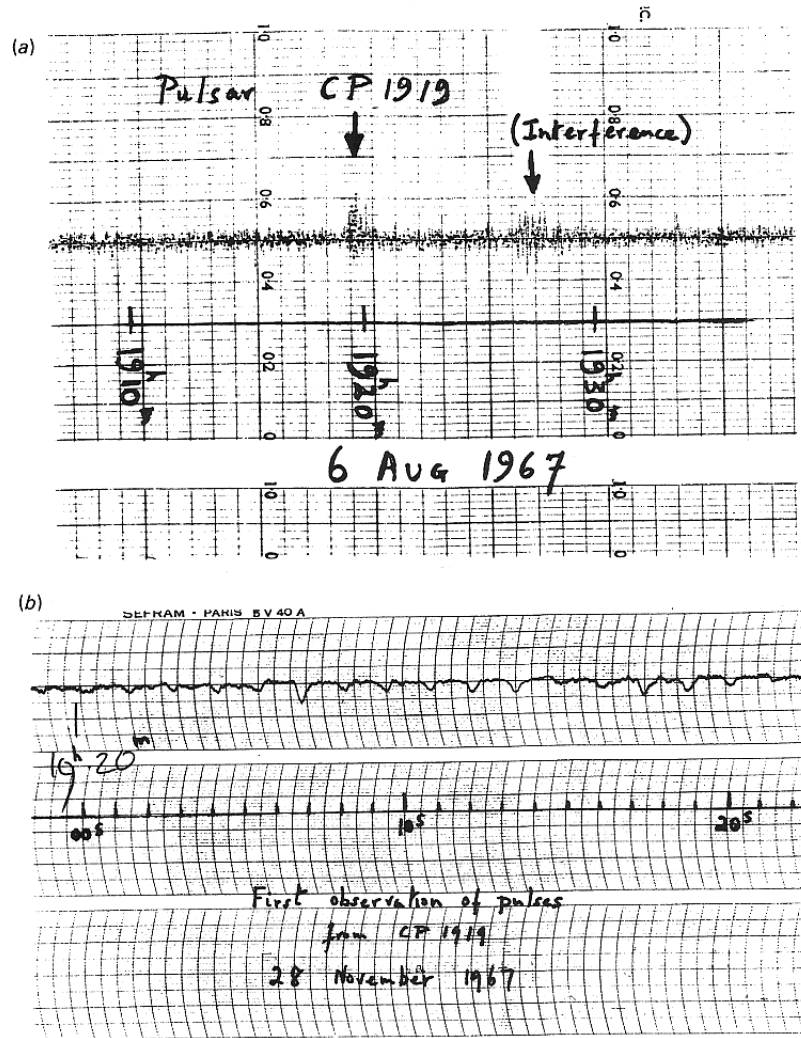 (a)
1·0 1·0
Pulsar CP 1919
0·8 0·8
(Interference)
0·6 0·6
0·4 0·4
0·2 0·2
19h10m 19h20m 19h30m
0 0
6 AUG 1967
1·0 1·0
0 0
(b)
SEFRAM - PARIS BV 40 A
19h 20m
00s 10s 20s
First observation of pulses
from CP 1919
28 November 1967